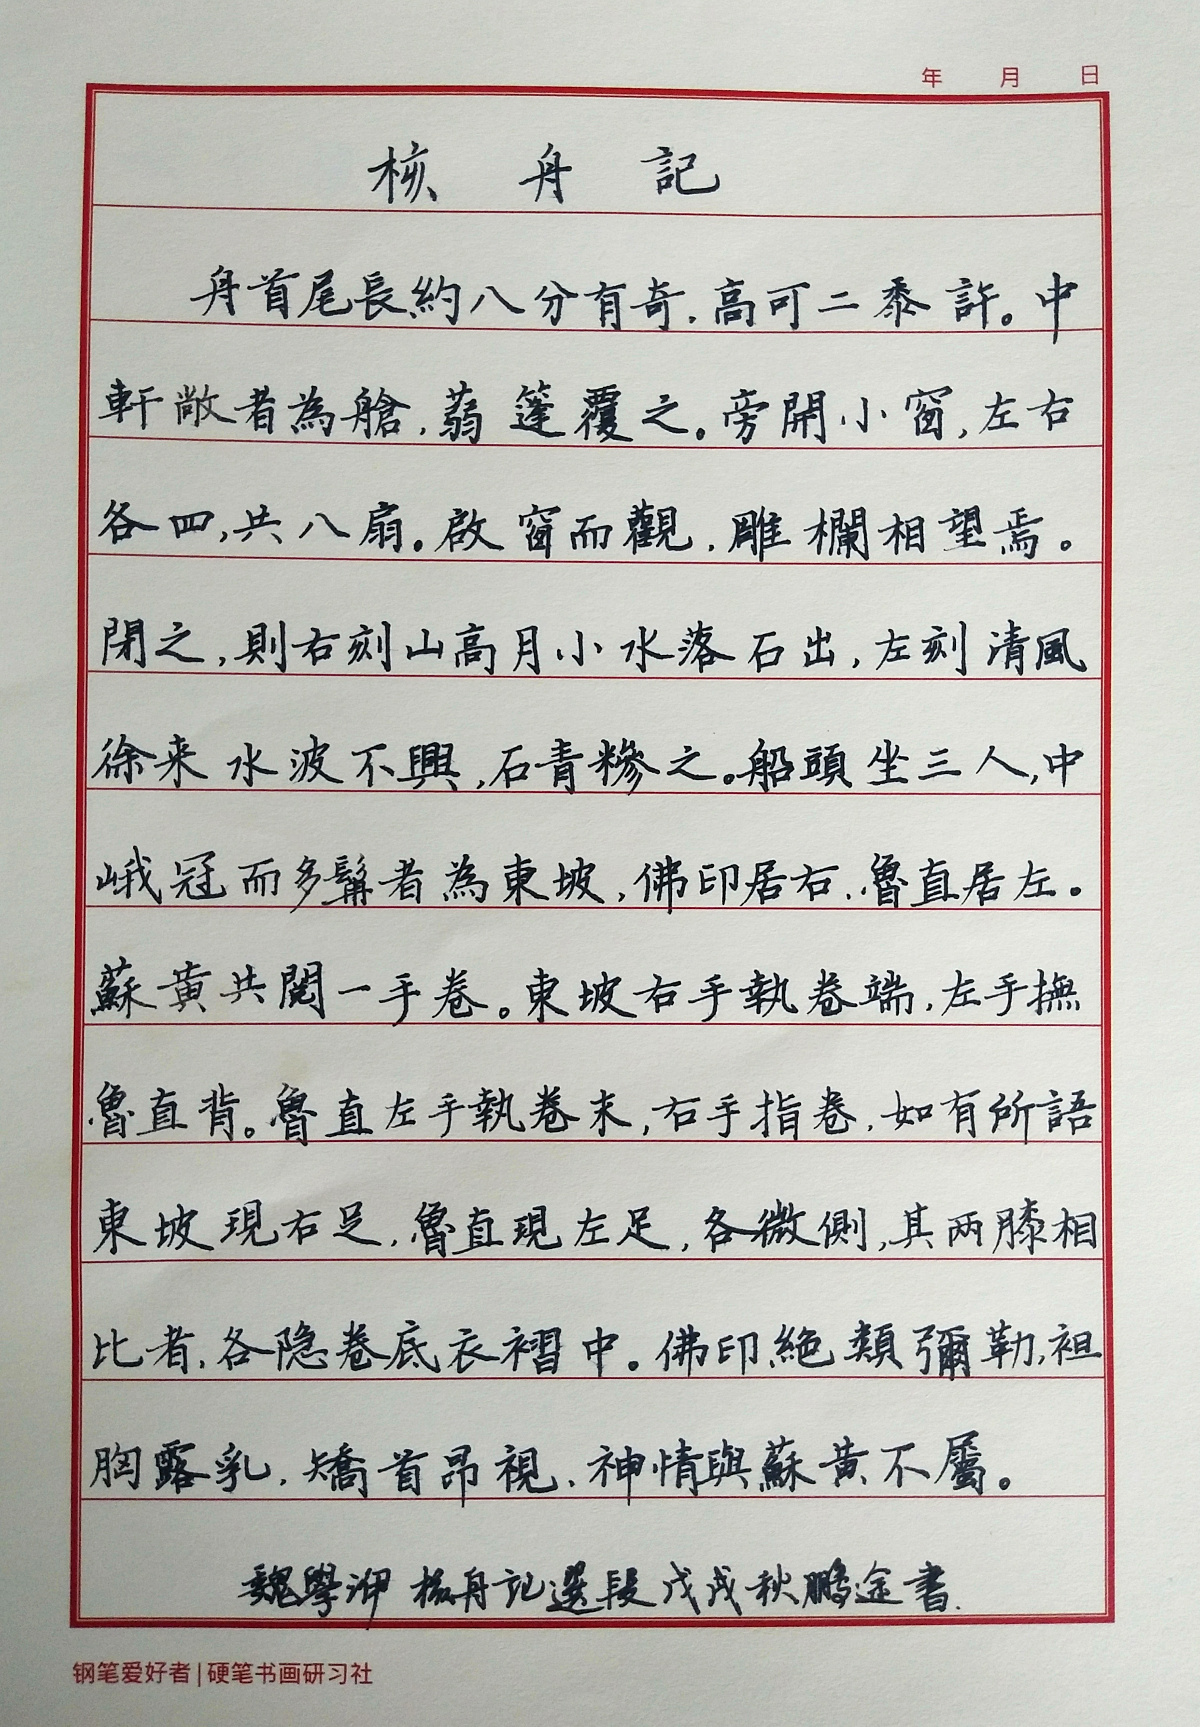 年 月 日
核舟記
舟首尾長約八分有奇，高可二黍許。中
軒敞者為艙，蒻篷覆之。旁開小窗，左右
各四，共八扇。啟窗而觀，雕欄相望焉。
閉之，則右刻山高月小水落石出，左刻清風
徐来水波不興，石青糝之。船頭坐三人，中
峨冠而多髯者為東坡，佛印居右，魯直居左。
蘇黄共閱一手卷。東坡右手執卷端，左手撫
魯直背。魯直左手執卷末，右手指卷，如有所語
東坡現右足，魯直現左足，各微側，其两膝相
比者，各隐卷底衣褶中。佛印絶類彌勒，袒
胸露乳，矯首昂視，神情與蘇黄不屬。
魏學洢 核舟记選段 戊戌秋鹏途書.
钢笔爱好者|硬笔书画研习社